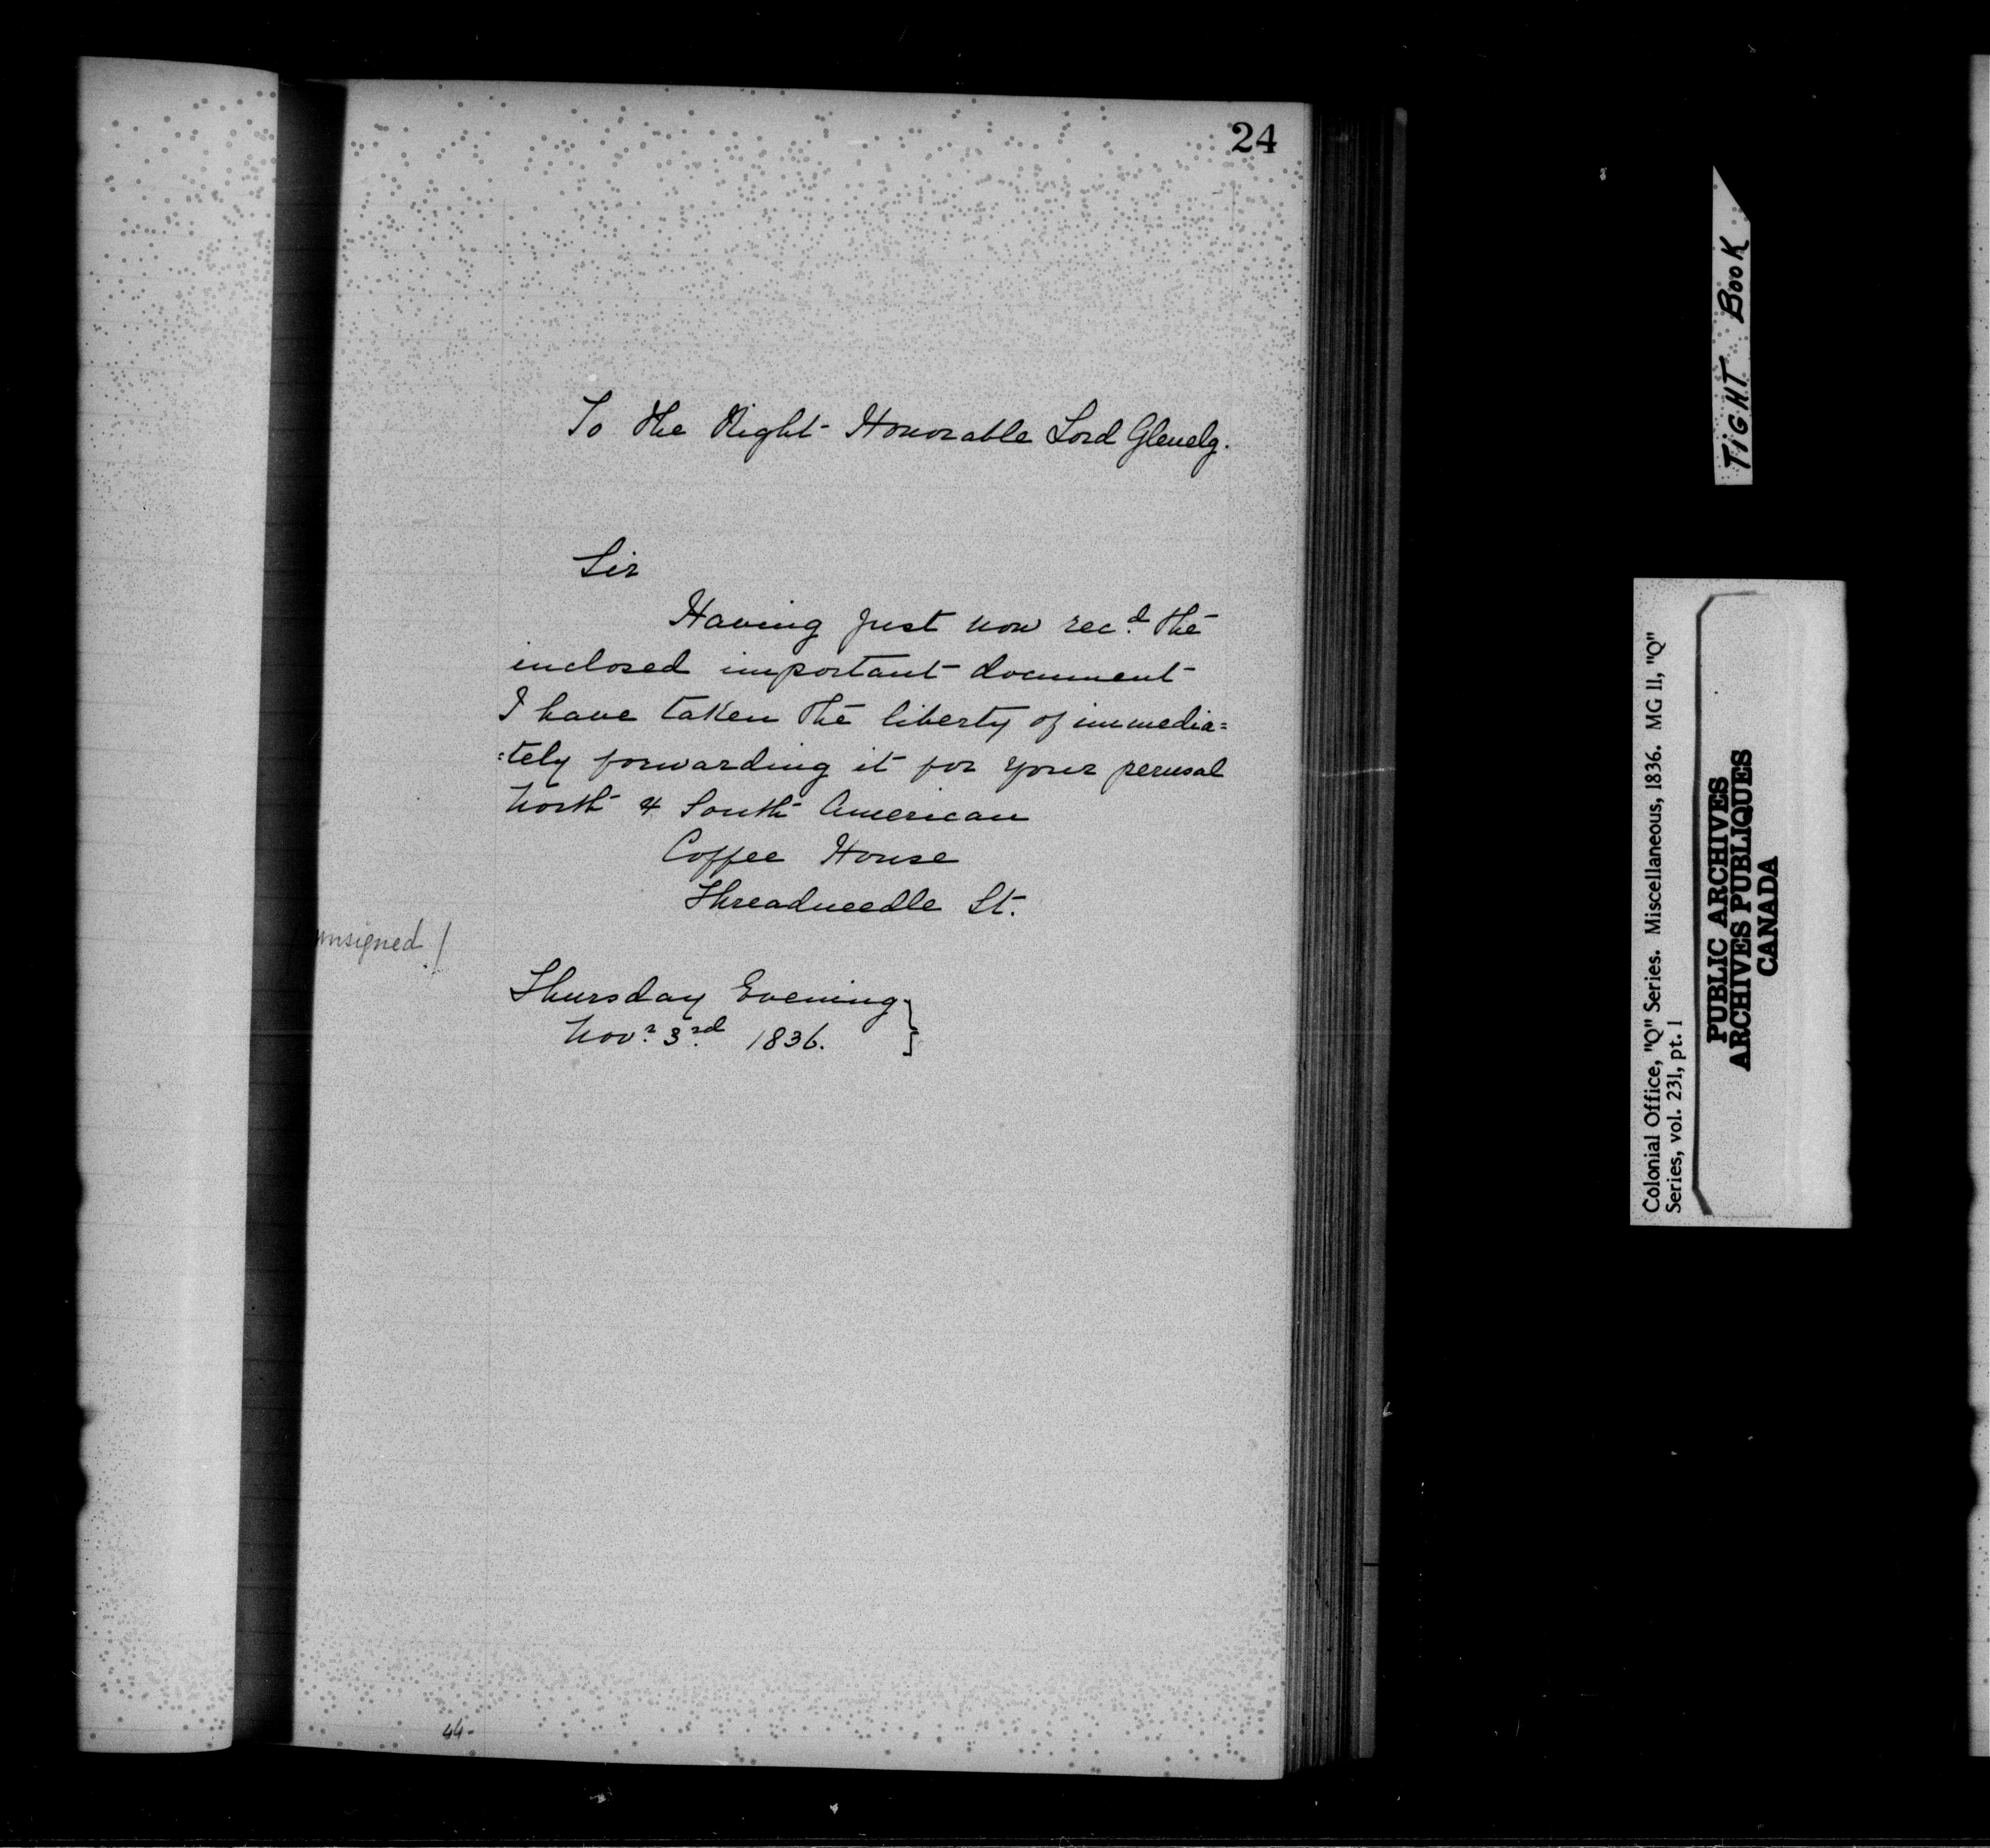 24
To the Right Honorable Lord Glenelg.
Sir
Having just now rec.d the
inclosed important document
I have taken the liberty of immedia=
=tely forwarding it for your perusal
North & South American
Coffee House
Threadneedle St.
unsigned!
Thursday Evening
Nov.r 3.rd 1836.
44
TIGHT BOOK
Colonial Office, "Q" Series. Miscellaneous, 1836. MG 11, "Q"
Series, vol. 231, pt. 1
PUBLIC ARCHIVES
ARCHIVES PUBLIQUES
CANADA